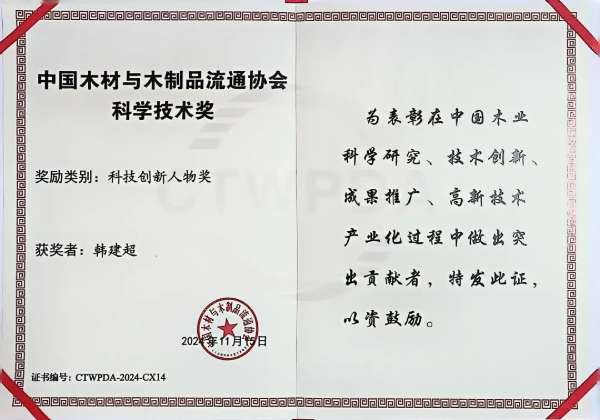 中国木材与木制品流通协会
科学技术奖
奖励类别：科技创新人物奖
获奖者：韩建超
中国木材与木制品流通协会
2024年11月15日
证书编号：CTWPDA-2024-CX14
CTWPDA
为表彰在中国木业
科学研究、技术创新、
成果推广、高新技术
产业化过程中做出突
出贡献者，特发此证，
以资鼓励。